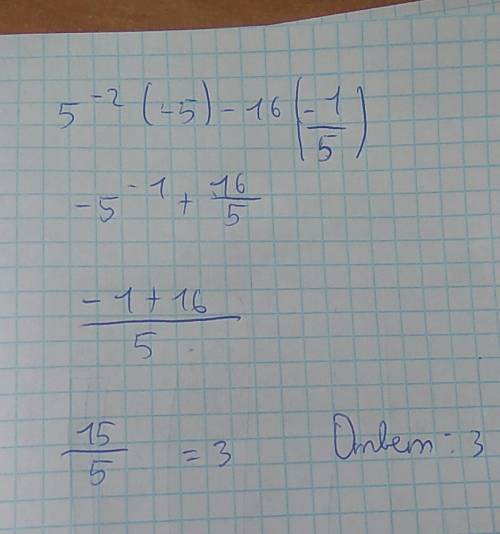 5⁻² (-5) - 16 (-1/5)
-5⁻¹ + 16/5
(-1 + 16)/5
15/5 = 3 Ответ: 3